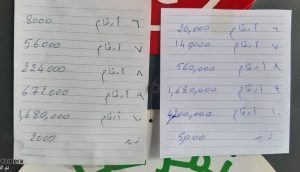 ٦ أرقام 20,000
٧ أرقام 140000
٨ أرقام 560,000
٩ أرقام 1,680,000
١٠ أرقام 4200,000
5000
٦ أرقام 8000
٧ أرقام 56000
٨ أرقام 224000
٩ أرقام 672000
١٠ أرقام 1,680,000
2000